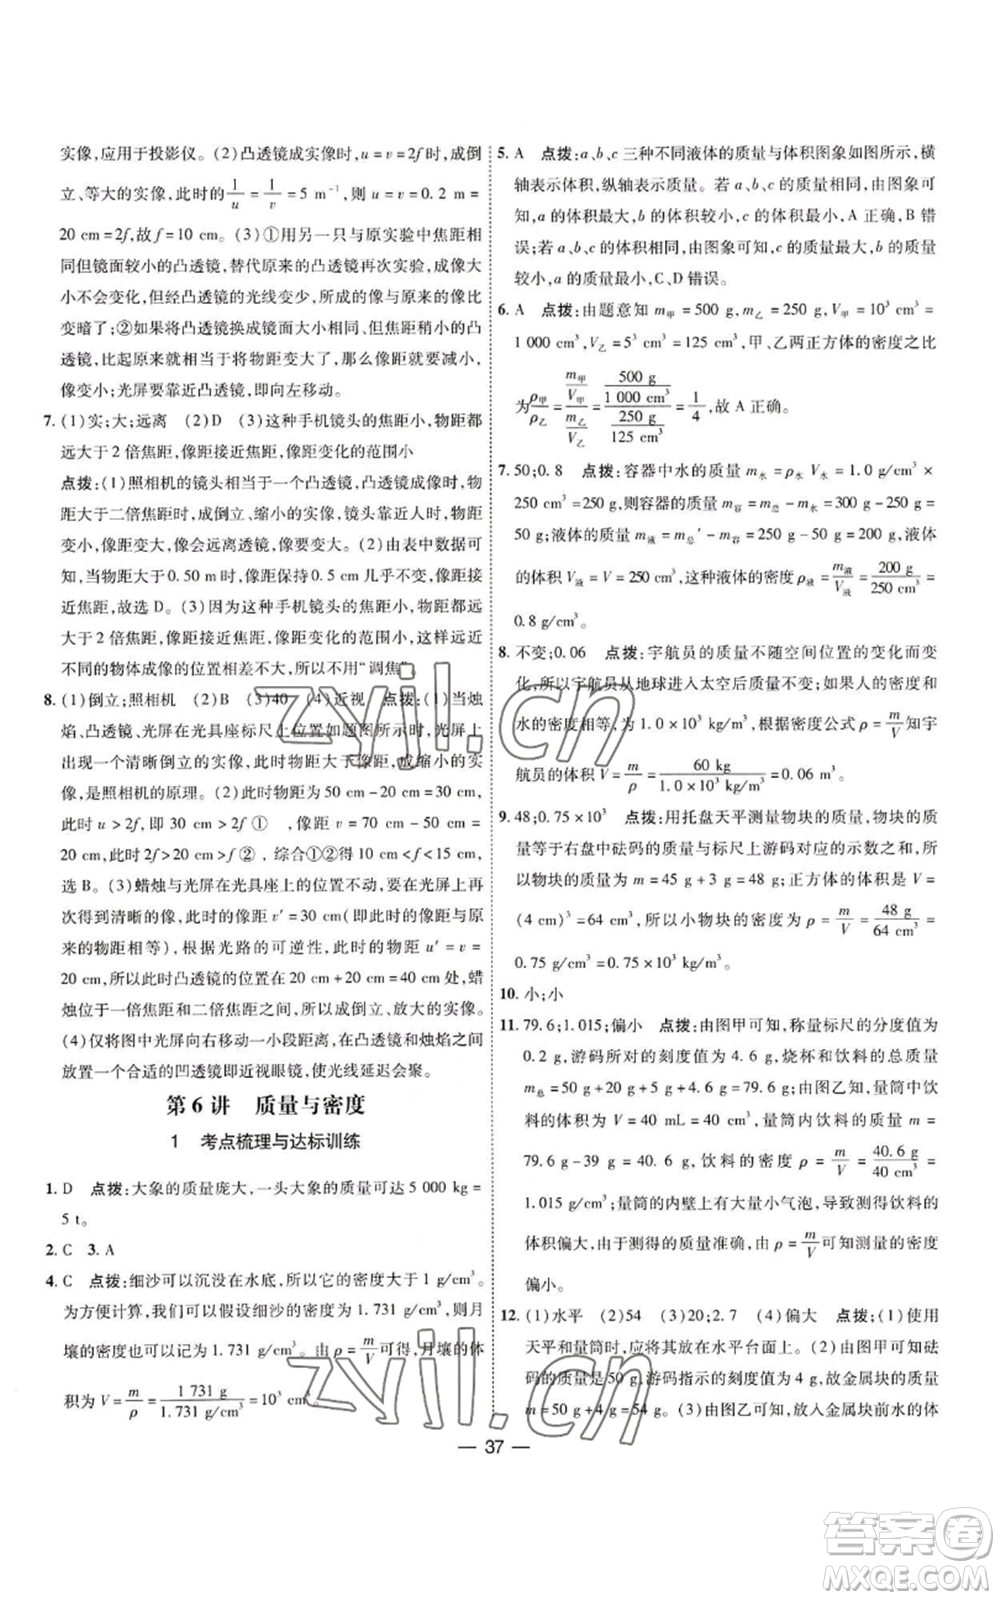 实像,应用于投影仪。(2)凸透镜成实像时,u=v=2f时,成倒
立、等大的实像,此时的1/u=1/v=5 m⁻¹,则 u=v=0.2 m=
20 cm=2f,故f=10 cm。(3)①用另一只与原实验中焦距相
同但镜面较小的凸透镜,替代原来的凸透镜再次实验,成像大
小不会变化,但经凸透镜的光线变少,所成的像与原来的像比
变暗了;②如果将凸透镜换成镜面大小相同,但焦距稍小的凸
透镜,比起原来就相当于将物距变大了,那么像距就要减小,
像变小;光屏要靠近凸透镜,即向左移动。
7. (1)实;大;远离 (2)D (3)这种手机镜头的焦距小,物距都
远大于2倍焦距,像距接近焦距,像距变化的范围小
点拨:(1)照相机的镜头相当于一个凸透镜,凸透镜成像时,物
距大于二倍焦距时,成倒立、缩小的实像,镜头靠近人时,物距
变小,像距变大,像会远离透镜。(2)由表中数据可知,当物
距大于0.50 m时,像距保持0.5 cm几乎不变,像距接
近焦距,故选D。(3)因为这种手机镜头的焦距小,物距都远
大于2倍焦距,像距接近焦距,像距变化的范围小,这样远近
不同的物体成像的位置相差不大,所以不用“调焦”。
8. (1)倒立;照相机 (2)B (3)40 (4)近视 点拨:(1)当烛
焰、凸透镜、光屏在光具座标尺上位置如题图所示时,光屏上
出现一个清晰倒立的实像,此时物距大于像距,成缩小的实
像,是照相机的原理。(2)此时物距为50 cm-20 cm=30 cm,
此时 u>2f,即 30 cm>2f ① ,像距v=70 cm-50 cm=
20 cm,此时2f>20 cm>f ②,综合①②得10 cm<f<15 cm,
选B。(3)蜡烛与光屏在光具座上的位置不动,要在光屏上再
次得到清晰的像,需使像距v′=30 cm(即此时的像距与原
来的物距相等),根据光路的可逆性,此时的物距 u′=v=
20 cm,所以此时凸透镜的位置在20 cm+20 cm=40 cm处,蜡
烛位于一倍焦距和二倍焦距之间,成倒立、放大的实像。
(4)仅将图中光屏向右移动一小段距离,在凸透镜和烛焰之间
放置一个合适的凹透镜即近视眼镜,使光线延迟会聚。
第6讲 质量与密度
1 考点梳理与达标训练
1. D 点拨:大象的质量庞大,一头大象的质量可达5 000 kg=
5 t。
2. C 3. A
4. C 点拨:细沙可以沉没在水底,所以它的密度大于1 g/cm³。
为方便计算,我们可以假设细沙的密度为1.731 g/cm³,则月
壤的密度也可以记为1.731 g/cm³。由ρ=m/V可得,月壤的体
积为V=m/ρ=1 731 g/1.731 g/cm³=10³ cm³。
5. A 点拨:a、b、c三种不同液体的质量与体积图象如图所示,横
轴表示体积,纵轴表示质量。若a、b、c的质量相同,由图象可
知,a的体积最大,b的体积较小,c的体积最小,A正确,B错
误;若a、b、c的体积相同,由图象可知,c的质量最大,b的质量
较小,a的质量最小,C、D错误。
6. A 点拨:由题意知m甲=500 g,m乙=250 g,V甲=10³ cm³=
1 000 cm³,V乙=5³ cm³=125 cm³,甲、乙两正方体的密度之比
为ρ甲/ρ乙=(m甲/V甲)/(m乙/V乙)=(500 g/1 000 cm³)/(250 g/125 cm³)=1/4,故A正确。
7. 50;0.8 点拨:容器中水的质量m水=ρ水 V水=1.0 g/cm³×
250 cm³=250 g,则容器的质量m容=m总-m水=300 g-250 g=
50 g;液体的质量m液=m总′-m容=250 g-50 g=200 g,液体
的体积V液=V=250 cm³,这种液体的密度ρ液=m液/V液=200 g/250 cm³=
0.8 g/cm³。
8. 不变;0.06 点拨:宇航员的质量不随空间位置的变化而变
化,所以宇航员从地球进入太空后质量不变;如果人的密度和
水的密度相等,为1.0×10³ kg/m³,根据密度公式ρ=m/V知宇
航员的体积V=m/ρ=60 kg/1.0×10³ kg/m³=0.06 m³。
9. 48;0.75×10³ 点拨:用托盘天平测量物块的质量,物块的质
量等于右盘中砝码的质量与标尺上游码对应的示数之和,所
以物块的质量m=45 g+3 g=48 g;正方体的体积是V=
(4 cm)³=64 cm³,所以小物块的密度ρ=m/V=48 g/64 cm³=
0.75 g/cm³=0.75×10³ kg/m³。
10. 小;小
11. 79.6;1.015;偏小 点拨:由图甲可知,称量标尺的分度值为
0.2 g,游码所对的刻度值为4.6 g,烧杯和饮料的总质量
m总=50 g+20 g+5 g+4.6 g=79.6 g;由图乙知,量筒中饮
料的体积为V=40 mL=40 cm³,量筒内饮料的质量m=
79.6 g-39 g=40.6 g,饮料的密度ρ=m/V=40.6 g/40 cm³=
1.015 g/cm³;量筒的内壁上有大量小气泡,导致测得饮料的
体积偏大,由于测得的质量准确,根据ρ=m/V可知测量的密度
偏小。
12. (1)水平 (2)54 (3)20;2.7 (4)偏大 点拨:(1)使用
天平和量筒时,应将其放在水平台面上。(2)由图甲可知砝
码的质量为50 g,游码指示的刻度值为4 g,故金属块的质量
m=50 g+4 g=54 g。(3)由图乙可知,放入金属块前水的体
— 37 —
zyjl.cn
zyjl.cn
答案圈
MXQE.COM